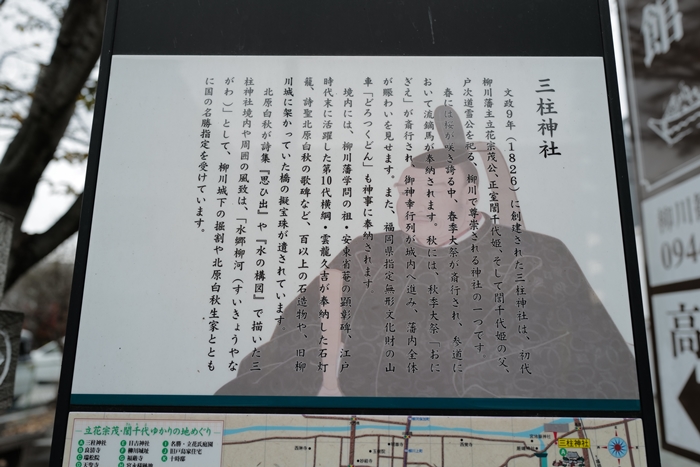 三柱神社
文政9年（1826）に創建された三柱神社は、初代
柳川藩主立花宗茂公、正室誾千代姫、そして誾千代姫の父、
戸次道雪公を祀る、柳川で尊崇される神社の一つです。
春には桜が咲き誇る中、春季大祭が斎行され、参道に
おいて流鏑馬が奉納されます。秋には、秋季大祭「おに
ぎえ」が斎行され、御神幸行列が城内へ進み、藩内全体
が賑わいを見せます。また、福岡県指定無形文化財の山
車「どろつくどん」も神事に奉納されます
境内には、柳川藩学問の祖・安東省菴の顕彰碑、江戸
時代末に活躍した第10代横綱・雲龍久吉が奉納した石灯
籠、詩聖北原白秋の歌碑など、百以上の石造物や、旧柳
川城に架かっていた橋の擬宝珠が遺されています。
北原白秋が詩集『思ひ出』や『水の構図』で描いた三
柱神社境内や周囲の風致は、「水郷柳河（すいきょうやな
がわ）」として、柳川城下の掘割や北原白秋生家ととも
に国の名勝指定を受けています。
立花宗茂・誾千代ゆかりの地めぐり
三柱神社
良清寺
瑞松院
天叟寺
日吉神社
柳川城址
福厳寺
名勝・立花氏庭園
旧戸島家住宅
十時邸
三柱神社
館
柳川
094
高